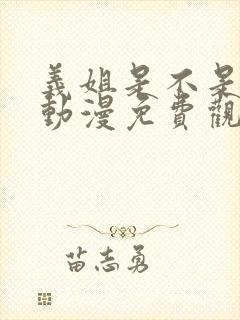 義姐是不是
動漫免費觀
苗志勇